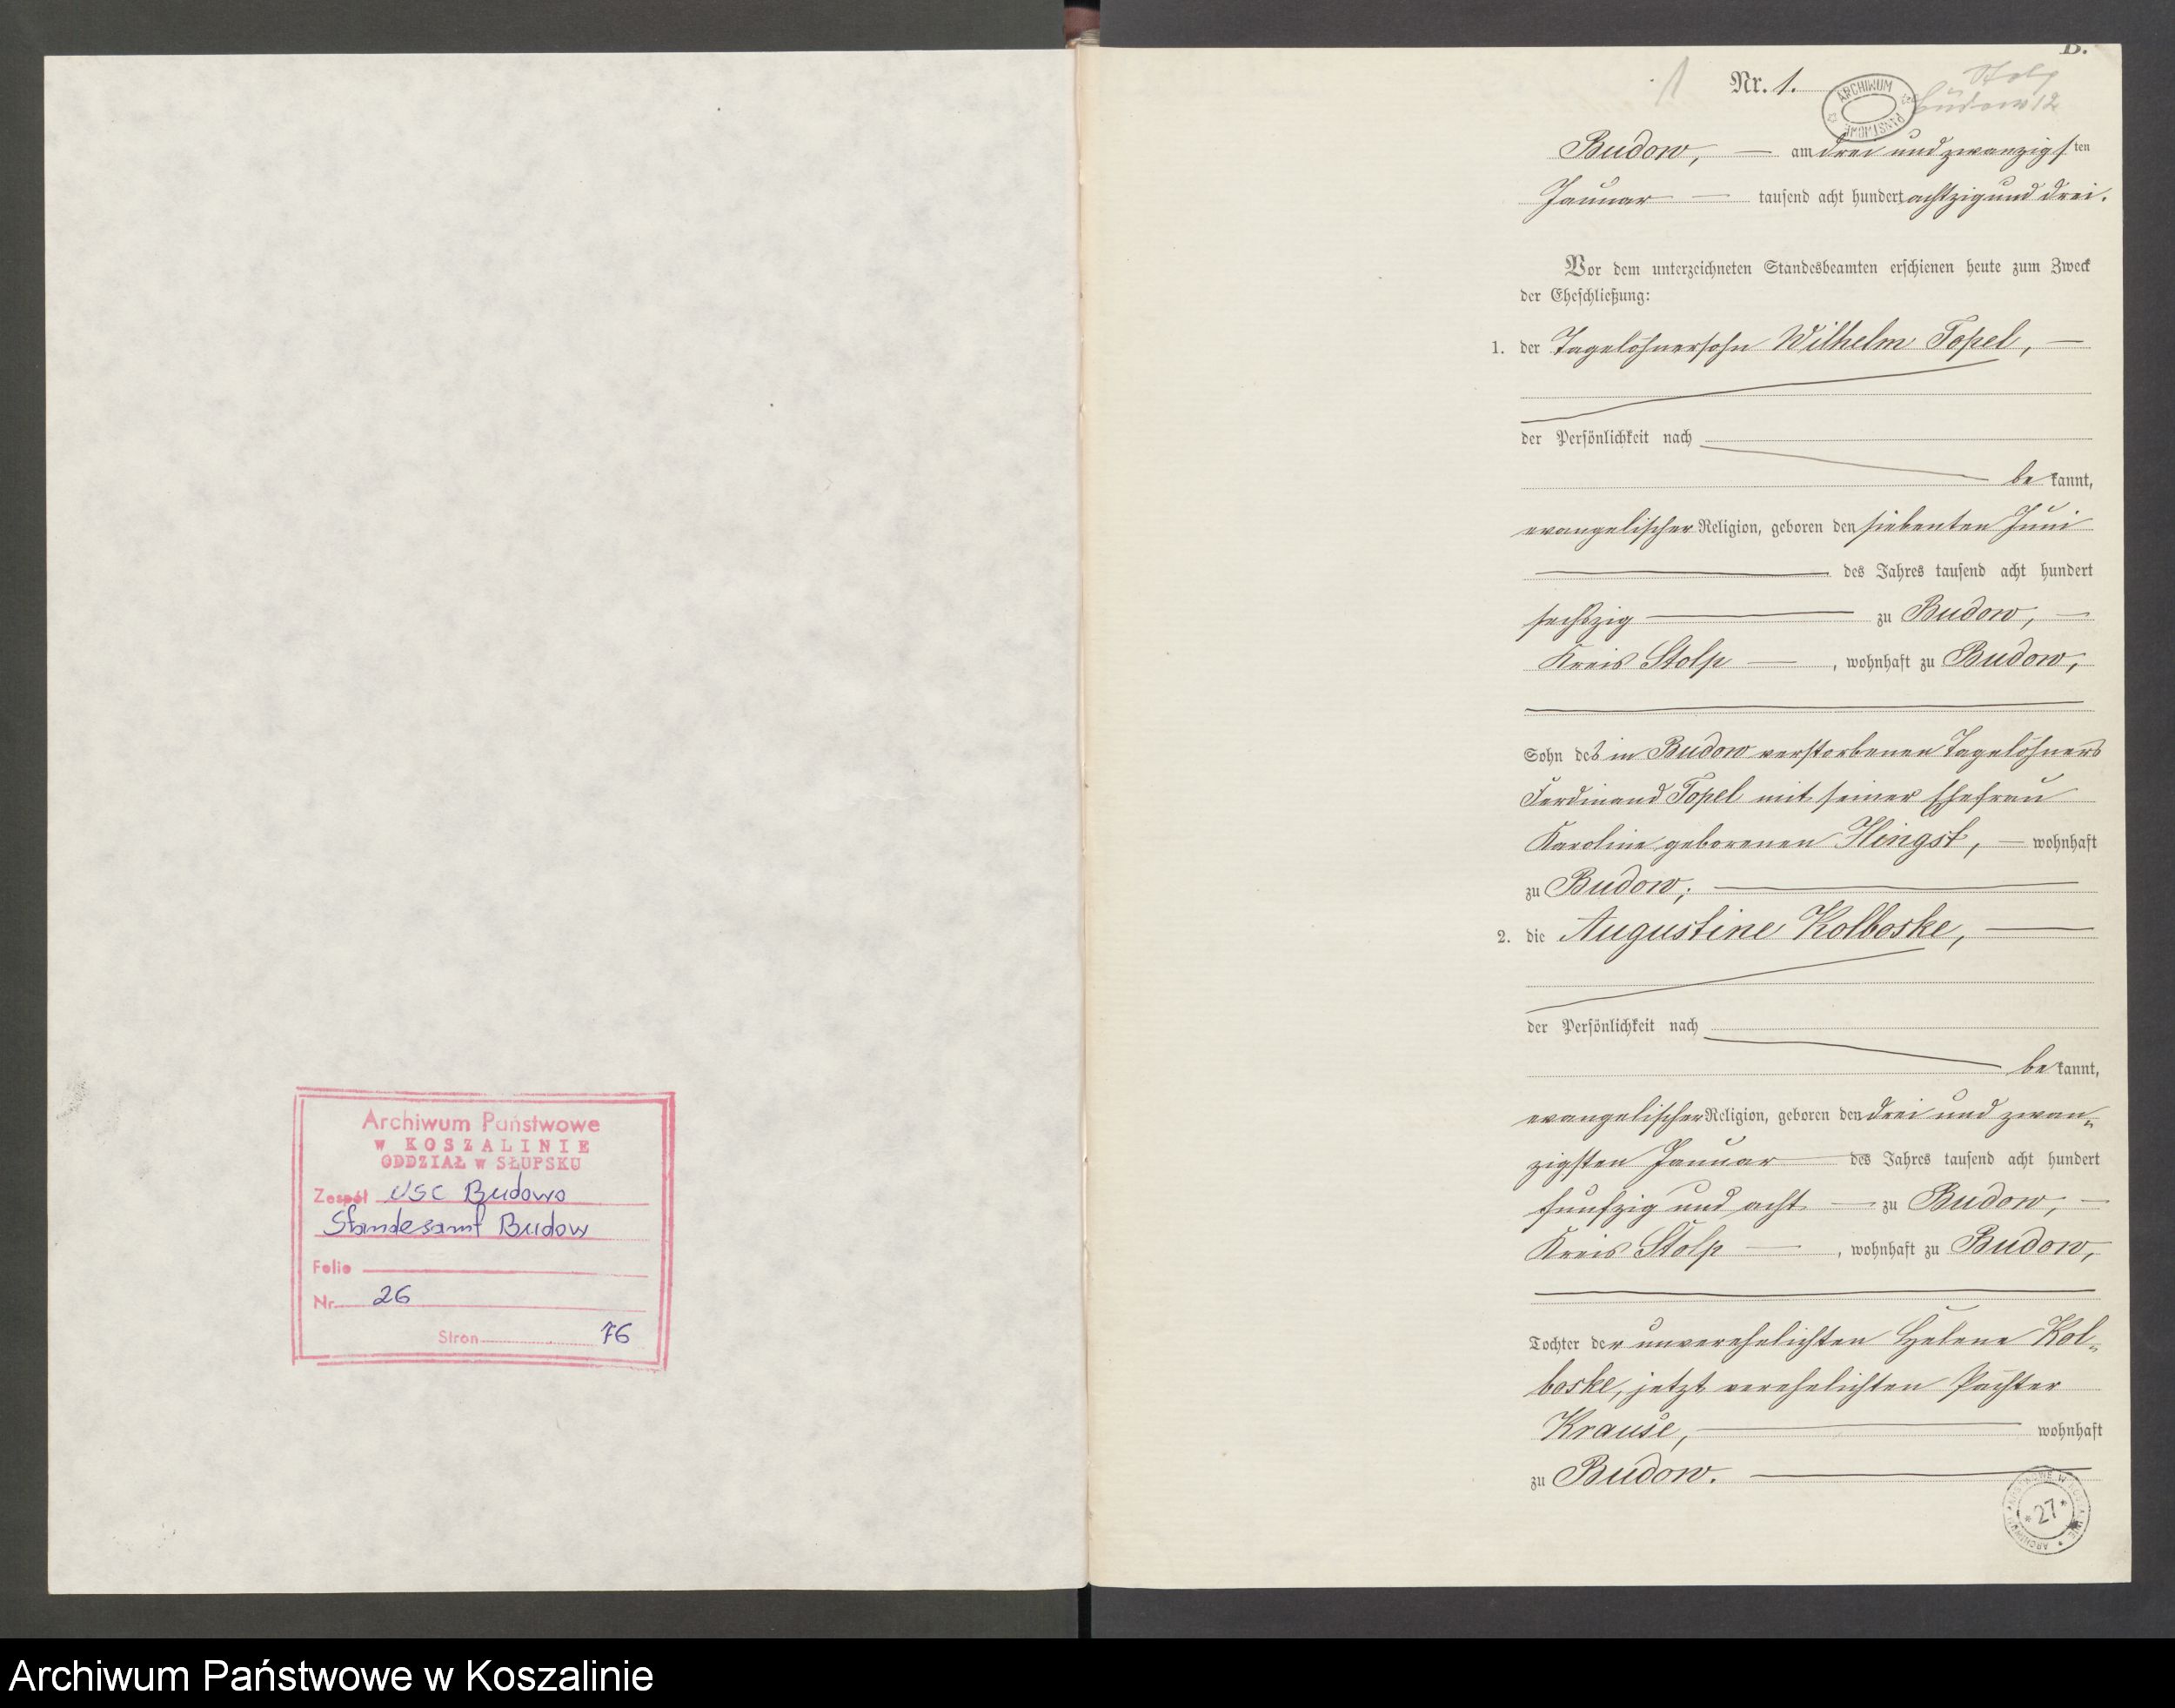 Archiwum Państwowe
w KOSZALINIE
ODDZIAŁ w SŁUPSKU
Zespół USC Budowo
Standesamt Budow
Folio
Nr. 26
Stron 76
B.
1 Nr. 1. Stolp
ARCHIWUM PAŃSTWOWE Budow 12
Budow, am drei und zwanzigsten
Januar tausend acht hundert achtzig und drei.
Vor dem unterzeichneten Standesbeamten erschienen heute zum Zweck
der Eheschließung:
1. der Tagelöhnersohn Wilhelm Topel,
der Persönlichkeit nach
be kannt,
evangelischer Religion, geboren den siebenten Juni
des Jahres tausend acht hundert
sechszig zu Budow,
Kreis Stolp, wohnhaft zu Budow,
Sohn des in Budow verstorbenen Tagelöhners
Ferdinand Topel mit seiner Ehefrau
Karoline geborenen Hingst, wohnhaft
zu Budow;
2. die Augustine Kolboske,
der Persönlichkeit nach
be kannt,
evangelischer Religion, geboren den drei und zwan-
zigsten Januar des Jahres tausend acht hundert
funfzig und acht zu Budow,
Kreis Stolp, wohnhaft zu Budow,
Tochter der unverehelichten Helene Kol-
boske, jetzt verehelichten Pächter
Krause, wohnhaft
zu Budow.
* 27 *
Archiwum Państwowe w Koszalinie